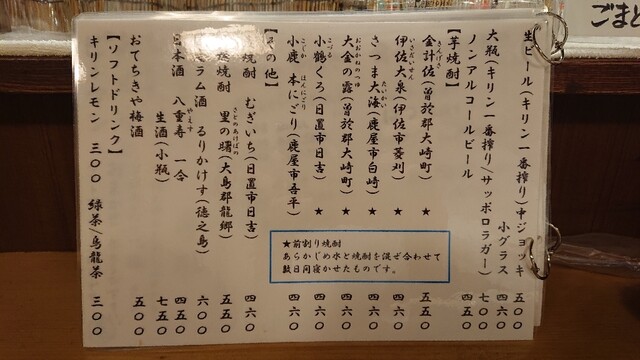 ごま
生ビール(キリン一番搾り)中ジョッキ 五五〇
小グラス 四六〇
大瓶(キリン一番搾り/サッポロラガー) 七〇〇
ノンアルコールビール 四五〇
【芋焼酎】
金計佐(曽於郡大崎町) ★ 五五〇
伊佐大泉(伊佐市菱刈) ★ 四六〇
さつま大海(鹿屋市白崎) ★ 四六〇
大金の露(曽於郡大崎町) ★ 四六〇
小鶴くろ(日置市日吉) ★ 四六〇
小鹿 本にごり(鹿屋市吾平) 四六〇
★前割り焼酎
あらかじめ水と焼酎を混ぜ合わせて
数日間寝かせたものです。
の他】
焼酎 むぎいち(日置市日吉) 四六〇
焼酎 里の曙(大島郡龍郷) 五五〇
ラム酒 るりかけす(徳之島) 六〇〇
日本酒 八重寿 一合 四五〇
生酒(小瓶) 七五〇
おてちきや梅酒 五〇〇
【ソフトドリンク】
キリンレモン 三〇〇 緑茶/烏龍茶 三〇〇